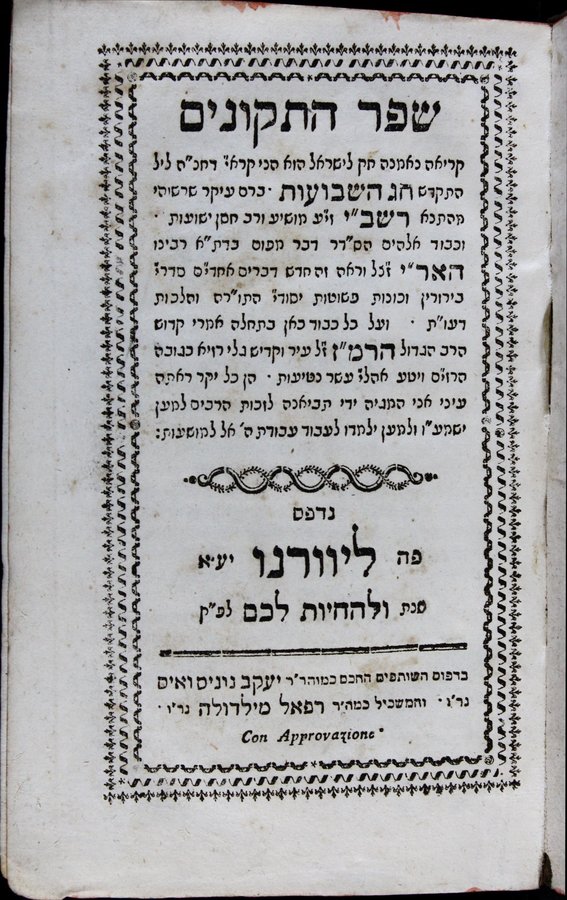 שפר התקונים
קריאה נאמנה חק לישראל הוא הני קראי דחנ"ה ליל
התקדש חג השבועות · ברם עיקר שרשוהי
מהתנא רשב"י זי"ע מושיע ורב חסן ישועות ·
וכבוד אלהים הס"דר דבר מפום בדת"א רבינו
האר"י ז"כל וראה זה חדש דברים אחדי"ם סדרי
בירורין וכונות פשוטות יסודי התו"רה והלכות
דעו"ת · ועל כל כבוד כאן בתחלה אמרי קדוש
הרב הגדול הרמ"ז ז"ל עיר וקדיש גלי רזיא בגובה
הרז"ם ויטע אהלי עשר נטיעות · הן כל יקר ראתה
עיני אני המגיה ידי תביאנה לזכות הרבים למען
ישמע"ו ולמען ילמדו לעבוד עבודת ה' אל למושעות:
נדפס
פה ליוורנו יע"א
שנת ולהחיות לכם לפ"ק
בדפוס השותפים החכם כמוהר"ר יעקב נוניס ואיס
נר"ו · והמשכיל כמה"ר רפאל מילדולה נר"ו ·
Con Approvazione